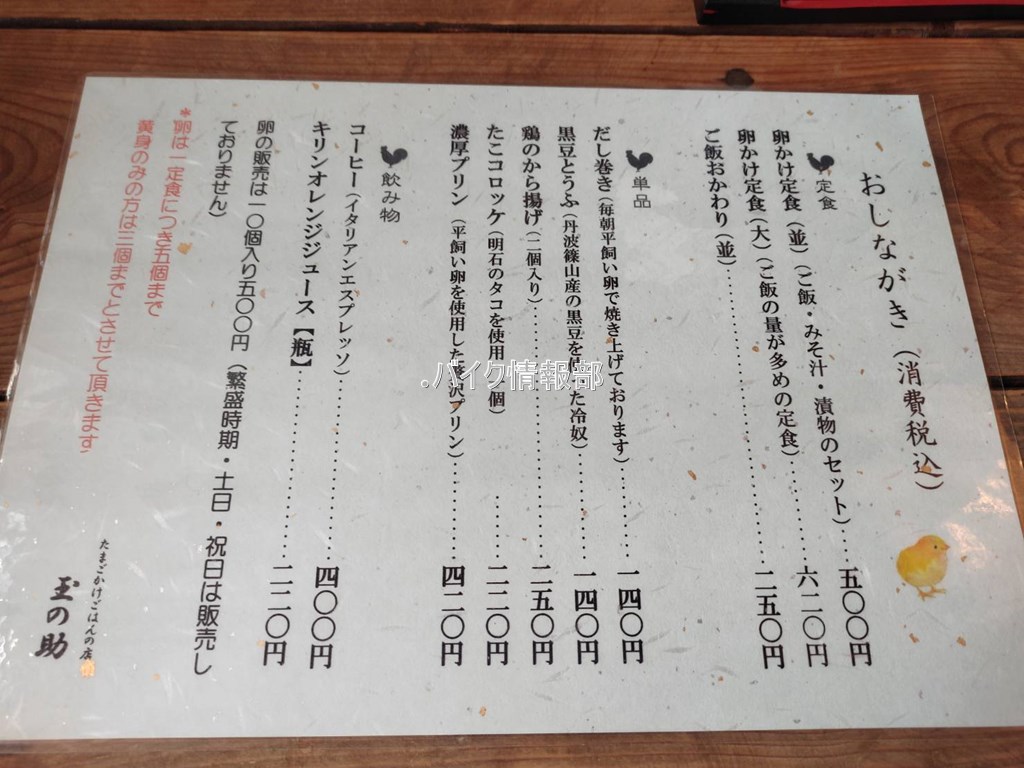 おしながき（消費税込）
定食
卵かけ定食（並）（ご飯・みそ汁・漬物のセット）‥‥五〇〇円
卵かけ定食（大）（ご飯の量が多めの定食）‥‥‥‥‥六二〇円
ご飯おかわり（並）‥‥‥‥‥‥‥‥‥‥‥‥二五〇円
単品
だし巻き（毎朝平飼い卵で焼き上げております）‥‥‥‥一四〇円
黒豆とうふ（丹波篠山産の黒豆を使った冷奴）‥‥‥‥‥一四〇円
鶏のから揚げ（二個入り）‥‥‥‥‥‥‥‥‥‥‥二五〇円
たこコロッケ（明石のタコを使用 個）‥‥‥二二〇円
濃厚プリン（平飼い卵を使用した贅沢プリン）‥‥‥‥‥四二〇円
飲み物
コーヒー（イタリアンエスプレッソ）‥‥‥‥‥‥‥‥四〇〇円
キリンオレンジジュース【瓶】‥‥‥‥‥‥‥‥‥二二〇円
卵の販売は一〇個入り五〇〇円（繁盛時期・土日・祝日は販売し
ておりません）
*卵は一定食につき五個まで
黄身のみの方は三個までとさせて頂きます
たまごかけごはんの店
玉の助
.バイク情報部